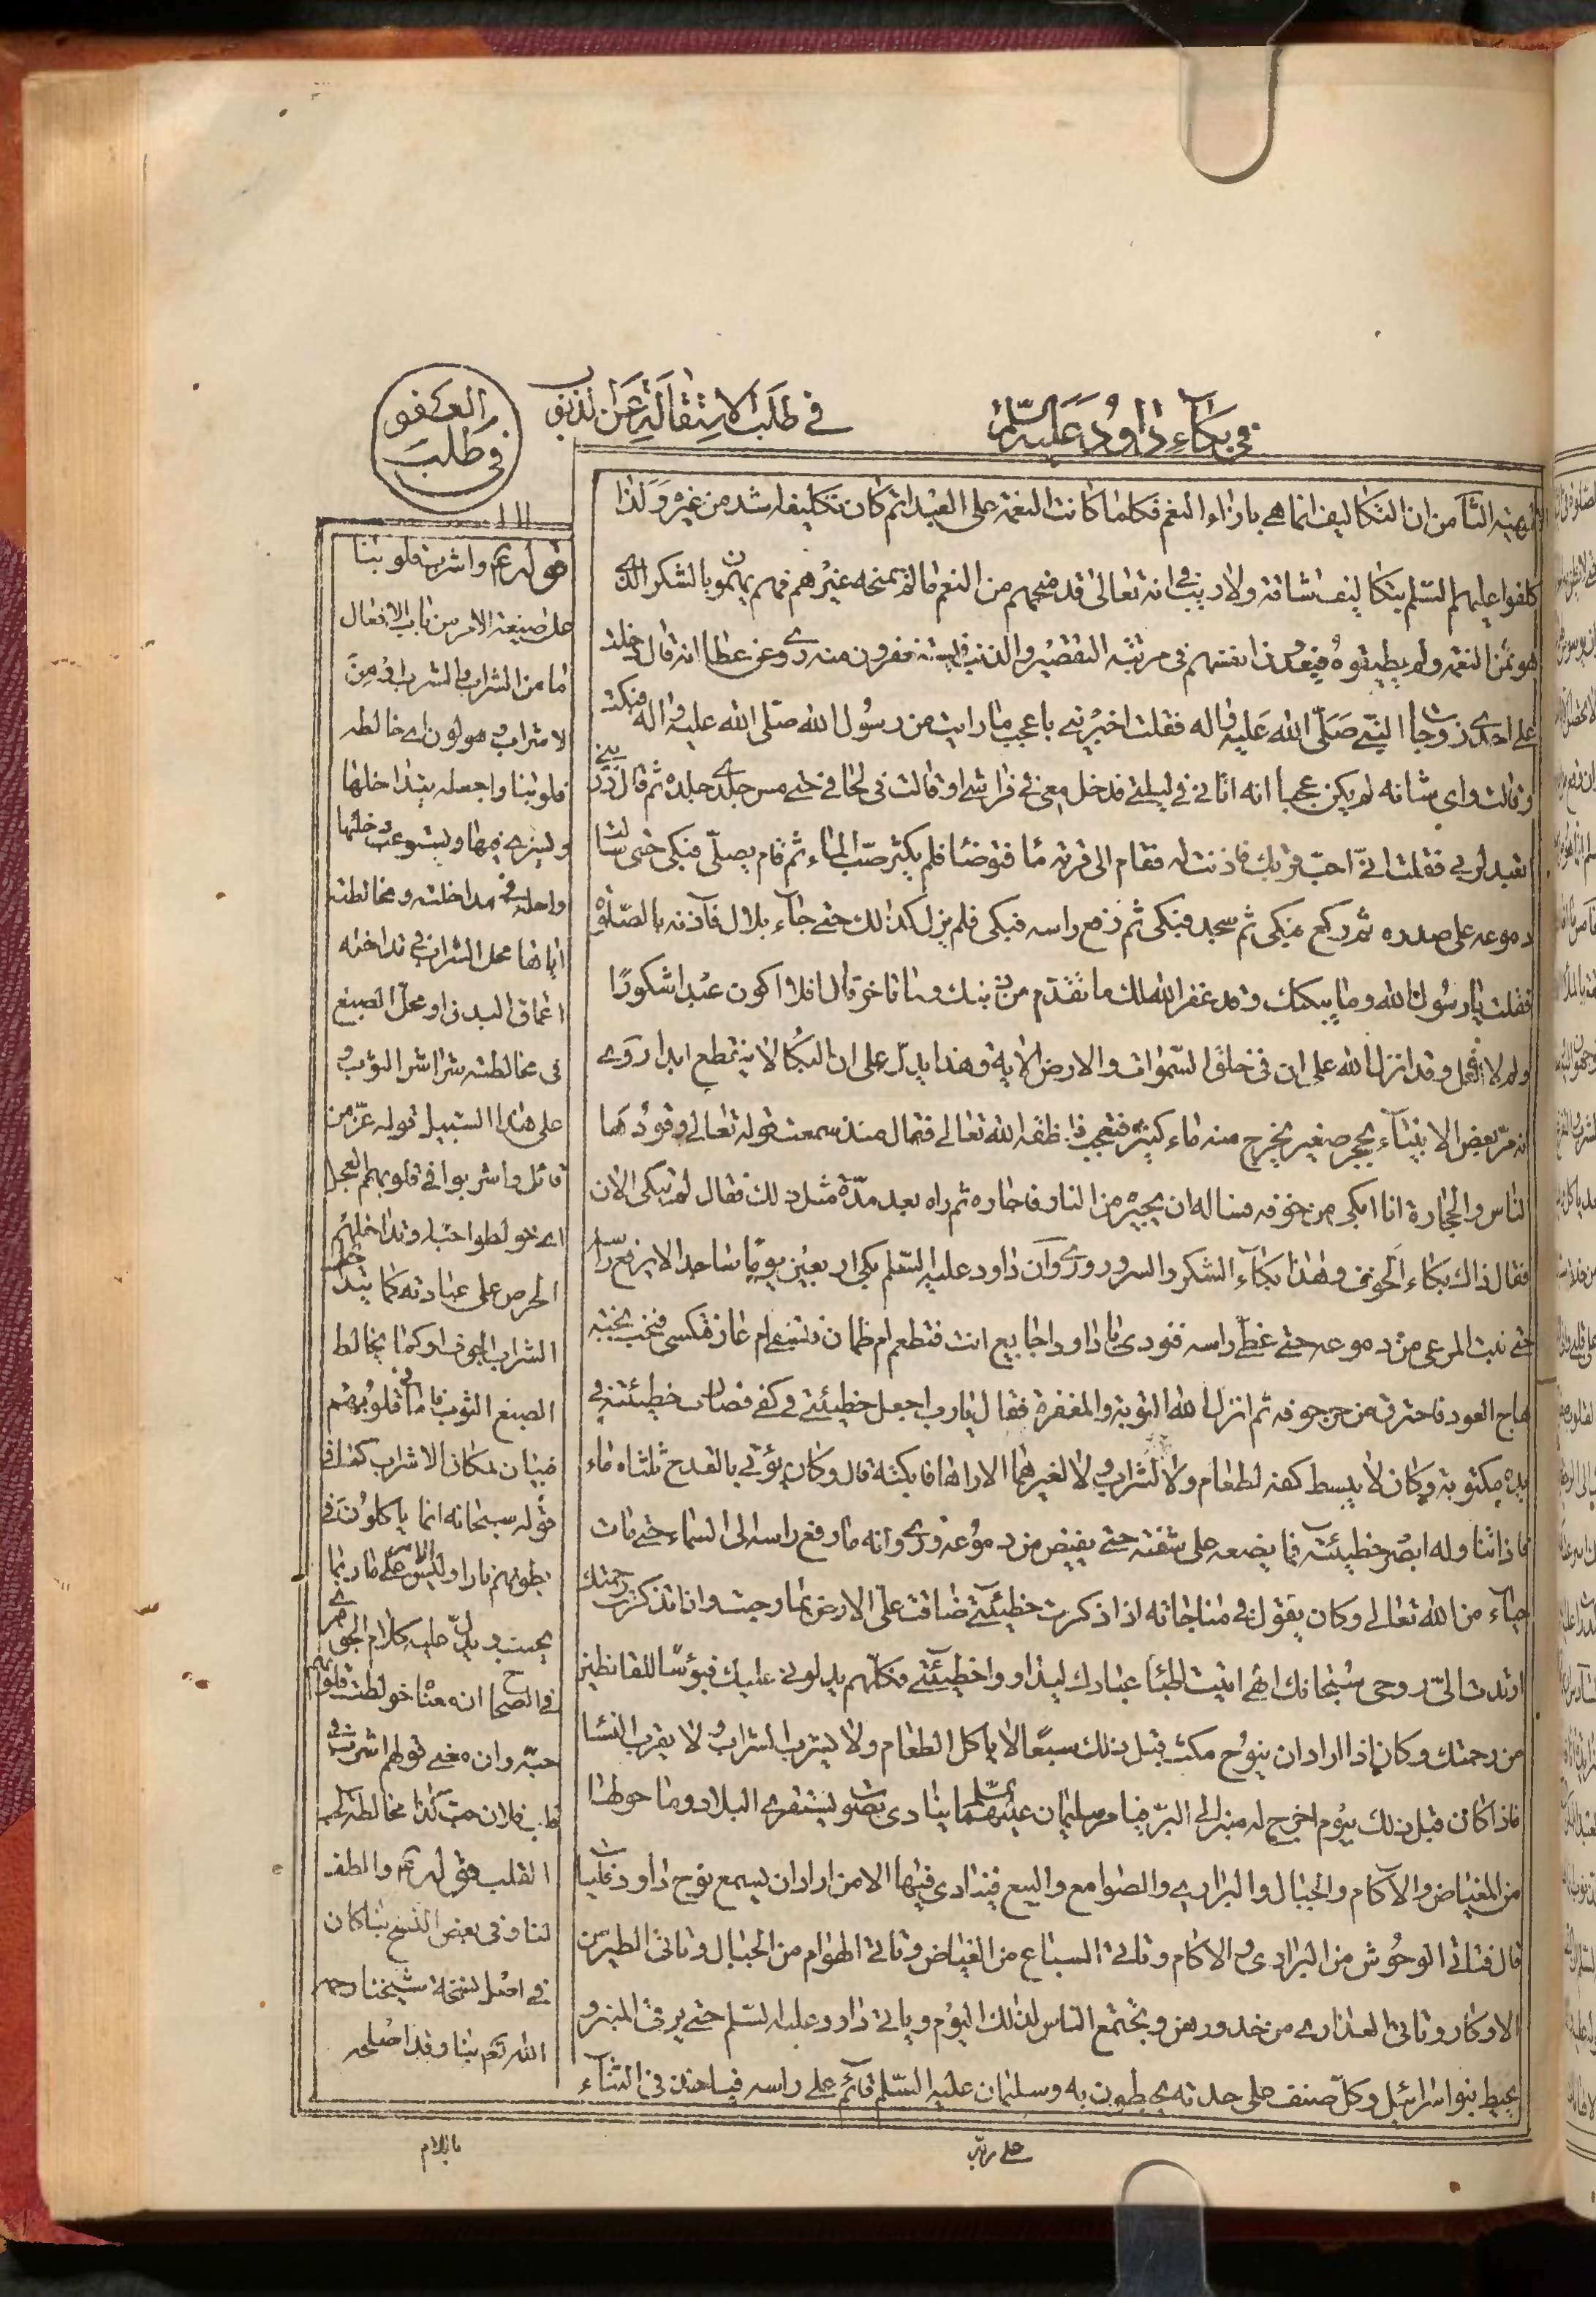 في بكآء داود عليه السّلم
في طلب الاستقالة عن الذنوب
طلب العفو
في طلب
من ان التكاليف انما هى بازاء النعم فكلما كانت النعمة على العبد اتم كان تكليفه اشد من غيره ولذا
كلفوا عليهم السّلم بتكاليف شاقة ولا ريب في انه تعالى قد منحهم من النعم ما لم يمنحه غيرهم فهم يهتمون بالشكر الذى
هو ثمن النعمة ولم يطيقوه فيعدون انفسهم في مرتبة التقصير والذنب فيستغفرون منه روى عن عطا انه قال دخلت
على احدى زوجات النبي صَلّى الله عَليه واله فقلت اخبريني باعجب ما رايت من رسُول الله صلّى الله عليه واله فبكت
وقالت واى شانه لم يكن عجبا انه اتانى في ليلتى فدخل معى في فراشى او قالت في لحافى حتى مس جلدى جلده ثم قال ذريني
اتعبد لربى فقلت انّى احبّ قربك فاذنت له فقام الى قربة ماء فتوضا فلم يكثر صبّ الماء ثم قام يصلّى فبكى حتى سالت
دموعه على صدره ثم ركع فبكى ثم سجد فبكى ثم رفع راسه فبكى فلم يزل كذلك حتى جآء بلال فآذنه بالصّلوة
فقلت يا رسُول الله وما يبكيك وقد غفر الله لك ما تقدم من ذنبك وما تاخر قال افلا اكون عبدا شكورًا
ولم لا افعل وقد انزل الله على ان في خلق السّموات والارض الاية وهذا يدلّ على ان البكا لا ينقطع ابدا روى
انه مرّ بعض الانبيآء بحجر صغير يخرج منه ماء كثير فتعجب فانطقه الله تعالى فقال منذ سمعت قوله تعالى وقودها
الناس والحجارة انا ابكى من خوفه فساله ان يجيره من النار فاجاره ثم راه بعد مدّة مثل ذلك فقال لم تبكى الان
فقال ذاك بكاء الخوف وهذا بكآء الشكر والسرور وروى ان داود عليه السّلم بكى اربعين يومًا ساجدا لا يرفع راسه
حتى نبت المرعى من دموعه حتى غطّى راسه فنودى يا داود اجايع انت فتطعم ام ظمان فتسقى ام عار فتكسى فنحب نحبة
هاج العود فاحترق من حر جوفه ثم انزل الله التوبة والمغفرة فقال يا رب اجعل خطيئتى في كفى فصارت خطيئته في
يده مكتوبة وكان لا يبسط كفه لطعام ولا لشراب ولا لغيرهما الا راها فابكته قال وكان يؤتى بالقدح ثلثاه ماء
فاذا تناوله ابصر خطيئته فما يضعه على شفته حتى يفيض من دموعه وروى انه ما رفع راسه الى السّماء حتى مات
حيآء من الله تعالى وكان يقول في مناجاته اذا ذكرت خطيئتى ضاقت علىّ الارض بما رحبت واذا تذكرت رحمتك
ارتدت الىّ روحى سُبحانك الهى اتيت اطبّا عبادك ليداووا خطيئتى فكلّهم يدلونى عليك فبؤسًا للقانطين
من رحمتك وكان اذا اراد ان ينوح مكث قبل ذلك سبعًا لا ياكل الطعام ولا يشرب الشراب ولا يقرب النسا
فاذا كان قبل ذلك بيوم اخرج له منبر الى البرّ فيامر سليمان عليهما السّلم ينادى بصوت يستقرى البلاد وما حولها
من الغياض والآكام والجبال والبرارى والصوامع والبيع فينادى فيها الا من اراد ان يسمع نوح داود فليات
قال فتاتى الوحُوش من البرارى والاكام وتاتى السباع من الغياض وتاتى الهوام من الجبال وتاتى الطير من
الاوكار وتاتى العذارى من خدورهن ويجتمع الناس لذلك اليوم وياتى داود عليه السّلم حتى يرقى المنبر و
يحيط بنو اسرائيل وكلّ صنف على حدته يحيطون به وسليمان عليه السّلم قائم على راسه فياخذ في الثنآء
على ربّه
قوله ع واشرب قلوبنا
على صيغة الامر من باب الافعال
اما من الشراب والشرب او من
الاشراب وهو لون اى خالطه
قلوبنا واجعله يتداخلها
ويسرى فيها ويستوعب خللها
واحله في مداخلته ومخالطته
اياها محل الشراب في تداخله
اعماق البدن او محلّ الصبغ
في مخالطته شراشر الثوب و
على هذا السبيل قوله عزّ من
قائل واشربوا في قلوبهم العجل
اى خولطوا حبّه وتداخلهم
الحرص على عبادته كما يتداخل
الشراب الجوف او كما يخالط
الصبغ الثوب فاما في قلوبهم
فبيان لمكان الاشراب كما في
قوله سبحانه انما ياكلون في
بطونهم نارا وليس الامر على ما ربما
يحسب ويدلّ عليه كلام الجوهرى
في الصحاح انه معناه خولطت قلوبهم
حبّه وان معنى قولهم اشرب في
قلب فلان حب كذا مخالطة الحب
القلب قوله ع والطف
لنا وفى بعض النسخ بنا كان
في اصل نسخة شيخنا رحمه
الله تعم بنا وقد اصلحه
باللام